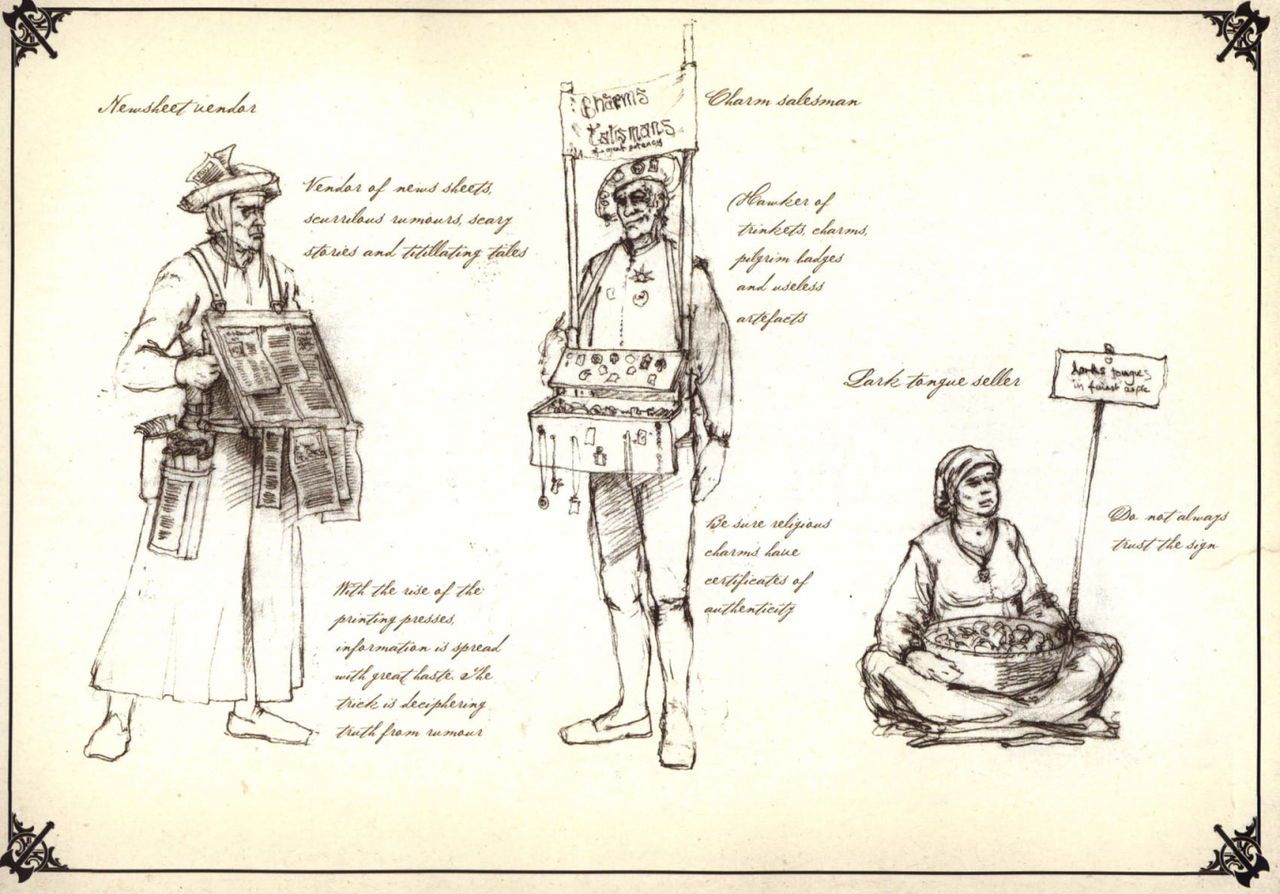 Newsheet vendor
Vendor of news sheets,
scurrilous rumours, scary
stories and titillating tales
With the rise of the
printing presses,
information is spread
with great haste. The
trick is deciphering
truth from rumour
Charms
Talismans
of great potency
Charm salesman
Hawker of
trinkets, charms,
pilgrim badges
and useless
artefacts
Be sure religious
charms have
certificates of
authenticity
Lark tongue seller
Larks tongues
in finest aspic
Do not always
trust the sign